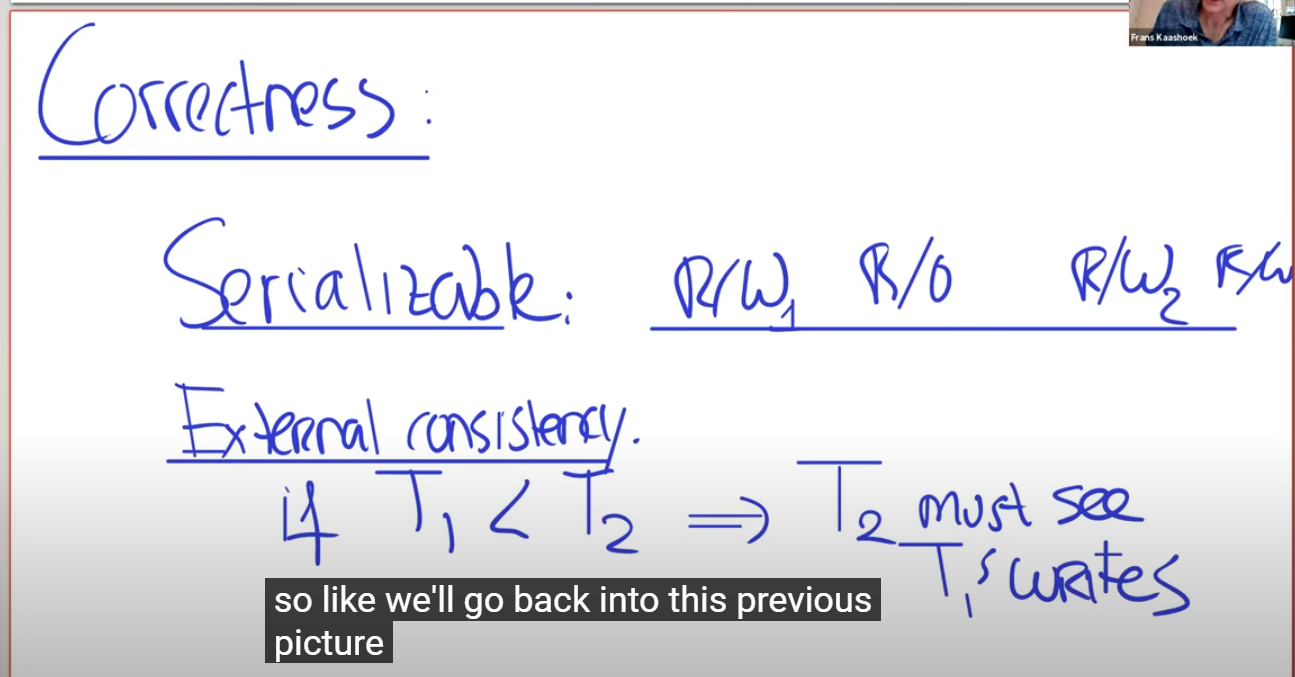 Frans Kaashoek
Correctness:
Serializable: R/W1 R/O R/W2 R/W
External consistency.
if T1 < T2 ⇒ T2 must see
T1's writes
so like we'll go back into this previous
picture